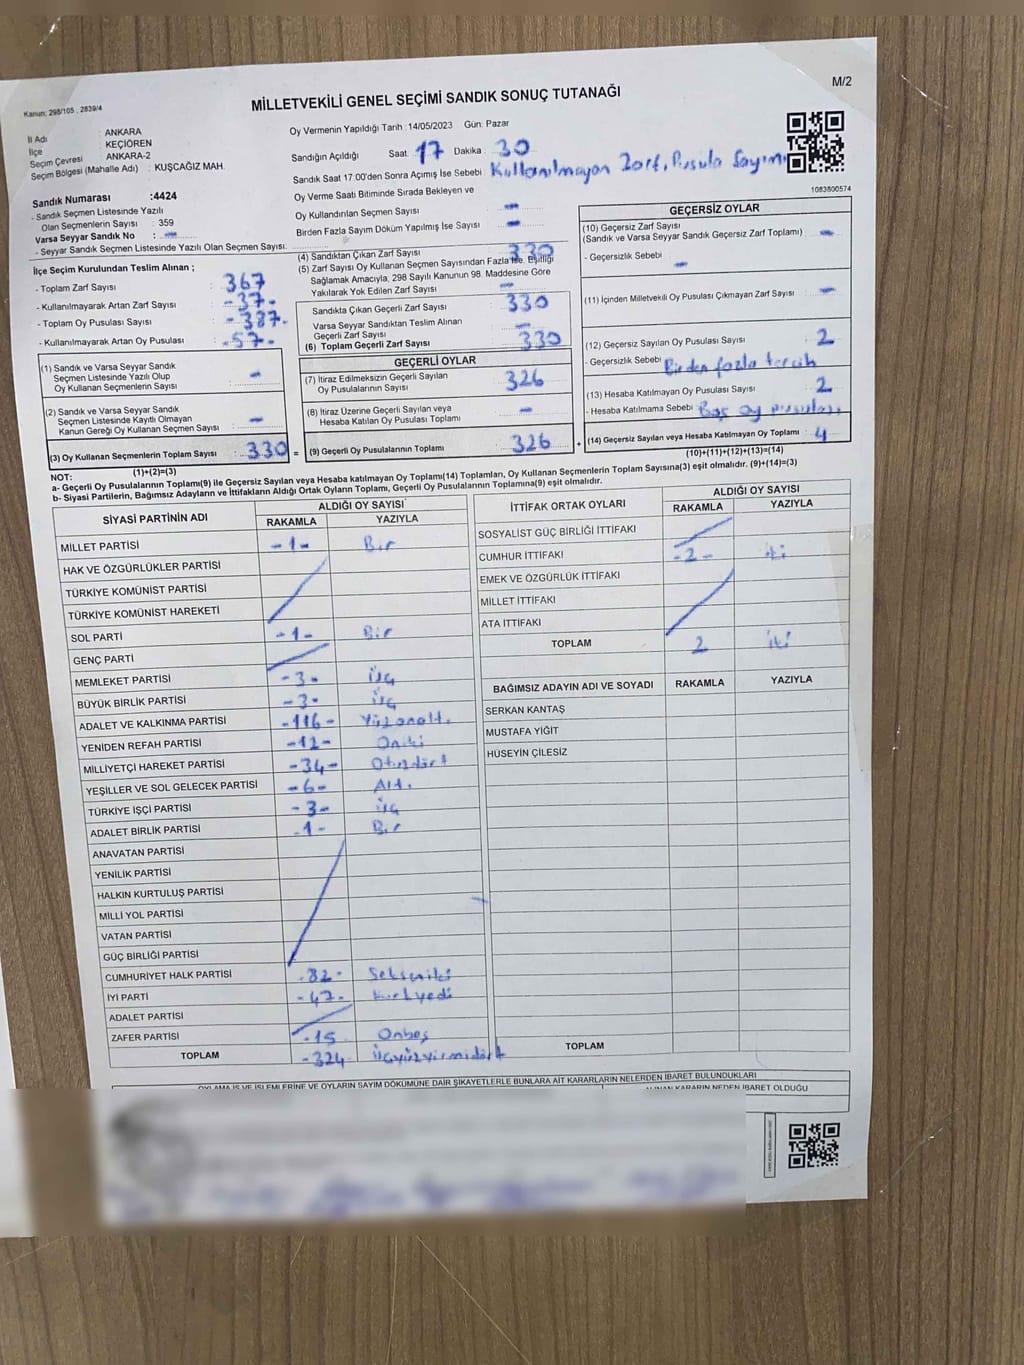 Kanun: 298/105 , 2839/4
M/2
MİLLETVEKİLİ GENEL SEÇİMİ SANDIK SONUÇ TUTANAĞI
İl Adı : ANKARA
İlçe : KEÇİÖREN
Seçim Çevresi : ANKARA-2
Seçim Bölgesi (Mahalle Adı) : KUŞCAĞIZ MAH.
Oy Vermenin Yapıldığı Tarih :14/05/2023 Gün: Pazar
Sandığın Açıldığı Saat: 17 Dakika: 30
Sandık Saat 17:00'den Sonra Açımış İse Sebebi Kullanılmayan Zarf, Pusula Sayımı
Oy Verme Saati Bitiminde Sırada Bekleyen ve
Oy Kullandırılan Seçmen Sayısı : -
Birden Fazla Sayım Döküm Yapılmış İse Sayısı : -
1083800574
Sandık Numarası :4424
- Sandık Seçmen Listesinde Yazılı
Olan Seçmenlerin Sayısı : 359
Varsa Seyyar Sandık No : -
- Seyyar Sandık Seçmen Listesinde Yazılı Olan Seçmen Sayısı:
İlçe Seçim Kurulundan Teslim Alınan ;
- Toplam Zarf Sayısı : 367
- Kullanılmayarak Artan Zarf Sayısı : -37-
- Toplam Oy Pusulası Sayısı : -387-
- Kullanılmayarak Artan Oy Pusulası : -57-
(1) Sandık ve Varsa Seyyar Sandık
Seçmen Listesinde Yazılı Olup
Oy Kullanan Seçmenlerin Sayısı : -
(2) Sandık ve Varsa Seyyar Sandık
Seçmen Listesinde Kayıtlı Olmayan
Kanun Gereği Oy Kullanan Seçmen Sayısı : -
(3) Oy Kullanan Seçmenlerin Toplam Sayısı : 330 =
(1)+(2)=(3)
(4) Sandıktan Çıkan Zarf Sayısı : 330
(5) Zarf Sayısı Oy Kullanan Seçmen Sayısından Fazla İse, Eşitliği
Sağlamak Amacıyla, 298 Sayılı Kanunun 98. Maddesine Göre
Yakılarak Yok Edilen Zarf Sayısı : -
Sandıkta Çıkan Geçerli Zarf Sayısı : 330
Varsa Seyyar Sandıktan Teslim Alınan
Geçerli Zarf Sayısı : -
(6) Toplam Geçerli Zarf Sayısı : 330
GEÇERLİ OYLAR
(7) İtiraz Edilmeksizin Geçerli Sayılan
Oy Pusulalarının Sayısı : 326
(8) İtiraz Üzerine Geçerli Sayılan veya
Hesaba Katılan Oy Pusulası Toplamı : -
(9) Geçerli Oy Pusulalarının Toplamı : 326 +
GEÇERSİZ OYLAR
(10) Geçersiz Zarf Sayısı
(Sandık ve Varsa Seyyar Sandık Geçersiz Zarf Toplamı) : -
- Geçersizlik Sebebi : -
(11) İçinden Milletvekili Oy Pusulası Çıkmayan Zarf Sayısı : -
(12) Geçersiz Sayılan Oy Pusulası Sayısı : 2
- Geçersizlik Sebebi : Birden fazla tercih
(13) Hesaba Katılmayan Oy Pusulası Sayısı : 2
- Hesaba Katılmama Sebebi : Boş oy pusulası
(14) Geçersiz Sayılan veya Hesaba Katılmayan Oy Toplamı : 4
(10)+(11)+(12)+(13)=(14)
NOT:
a- Geçerli Oy Pusulalarının Toplamı(9) ile Geçersiz Sayılan veya Hesaba katılmayan Oy Toplamı(14) Toplamları, Oy Kullanan Seçmenlerin Toplam Sayısına(3) eşit olmalıdır. (9)+(14)=(3)
b- Siyasi Partilerin, Bağımsız Adayların ve İttifakların Aldığı Ortak Oyların Toplamı, Geçerli Oy Pusulalarının Toplamına(9) eşit olmalıdır.
SİYASİ PARTİNİN ADI ALDIĞI OY SAYISI
RAKAMLA YAZIYLA
MİLLET PARTİSİ -1- Bir
HAK VE ÖZGÜRLÜKLER PARTİSİ
TÜRKİYE KOMÜNİST PARTİSİ
TÜRKİYE KOMÜNİST HAREKETİ
SOL PARTİ -1- Bir
GENÇ PARTİ
MEMLEKET PARTİSİ -3- Üç
BÜYÜK BİRLİK PARTİSİ -3- Üç
ADALET VE KALKINMA PARTİSİ -116- Yüzonaltı
YENİDEN REFAH PARTİSİ -12- Oniki
MİLLİYETÇİ HAREKET PARTİSİ -34- Otuzdört
YEŞİLLER VE SOL GELECEK PARTİSİ -6- Altı
TÜRKİYE İŞÇİ PARTİSİ -3- Üç
ADALET BİRLİK PARTİSİ -1- Bir
ANAVATAN PARTİSİ
YENİLİK PARTİSİ
HALKIN KURTULUŞ PARTİSİ
MİLLİ YOL PARTİSİ
VATAN PARTİSİ
GÜÇ BİRLİĞİ PARTİSİ
CUMHURİYET HALK PARTİSİ -82- Sekseniki
İYİ PARTİ -47- Kırkyedi
ADALET PARTİSİ
ZAFER PARTİSİ -15 Onbeş
TOPLAM -324- Üçyüzyirmidört
İTTİFAK ORTAK OYLARI ALDIĞI OY SAYISI
RAKAMLA YAZIYLA
SOSYALİST GÜÇ BİRLİĞİ İTTİFAKI
CUMHUR İTTİFAKI -2- iki
EMEK VE ÖZGÜRLÜK İTTİFAKI
MİLLET İTTİFAKI
ATA İTTİFAKI
TOPLAM 2 iki
BAĞIMSIZ ADAYIN ADI VE SOYADI RAKAMLA YAZIYLA
SERKAN KANTAŞ
MUSTAFA YİĞİT
HÜSEYİN ÇİLESİZ
TOPLAM
OYLAMA İŞ VE İŞLEMLERİNE VE OYLARIN SAYIM DÖKÜMÜNE DAİR ŞİKAYETLERLE BUNLARA AİT KARARLARIN NELERDEN İBARET BULUNDUKLARI
ALINAN KARARIN NEDEN İBARET OLDUĞU